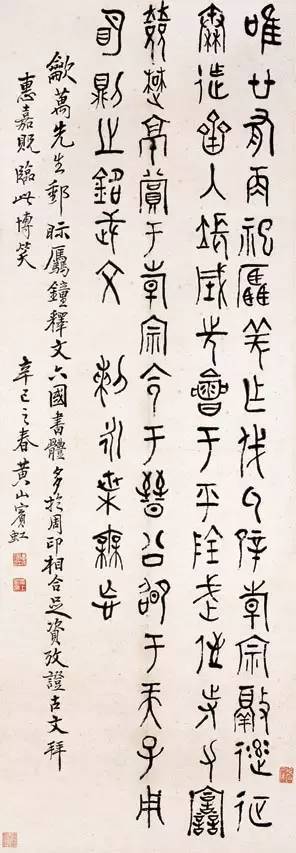 唯廿又再祀羌乍戎氒辟倝宗敲征
秦迮齊入長城先會于平陰武侄寺力
楚京賞于倝宗令于晉公邵于天子用
明則之銘武文剌永枼無忘
萬先生郵眎鐘釋文六國書體多於周印相合足資攷證古文拜
惠嘉貺臨此博笑
辛巳之春黃山賓虹